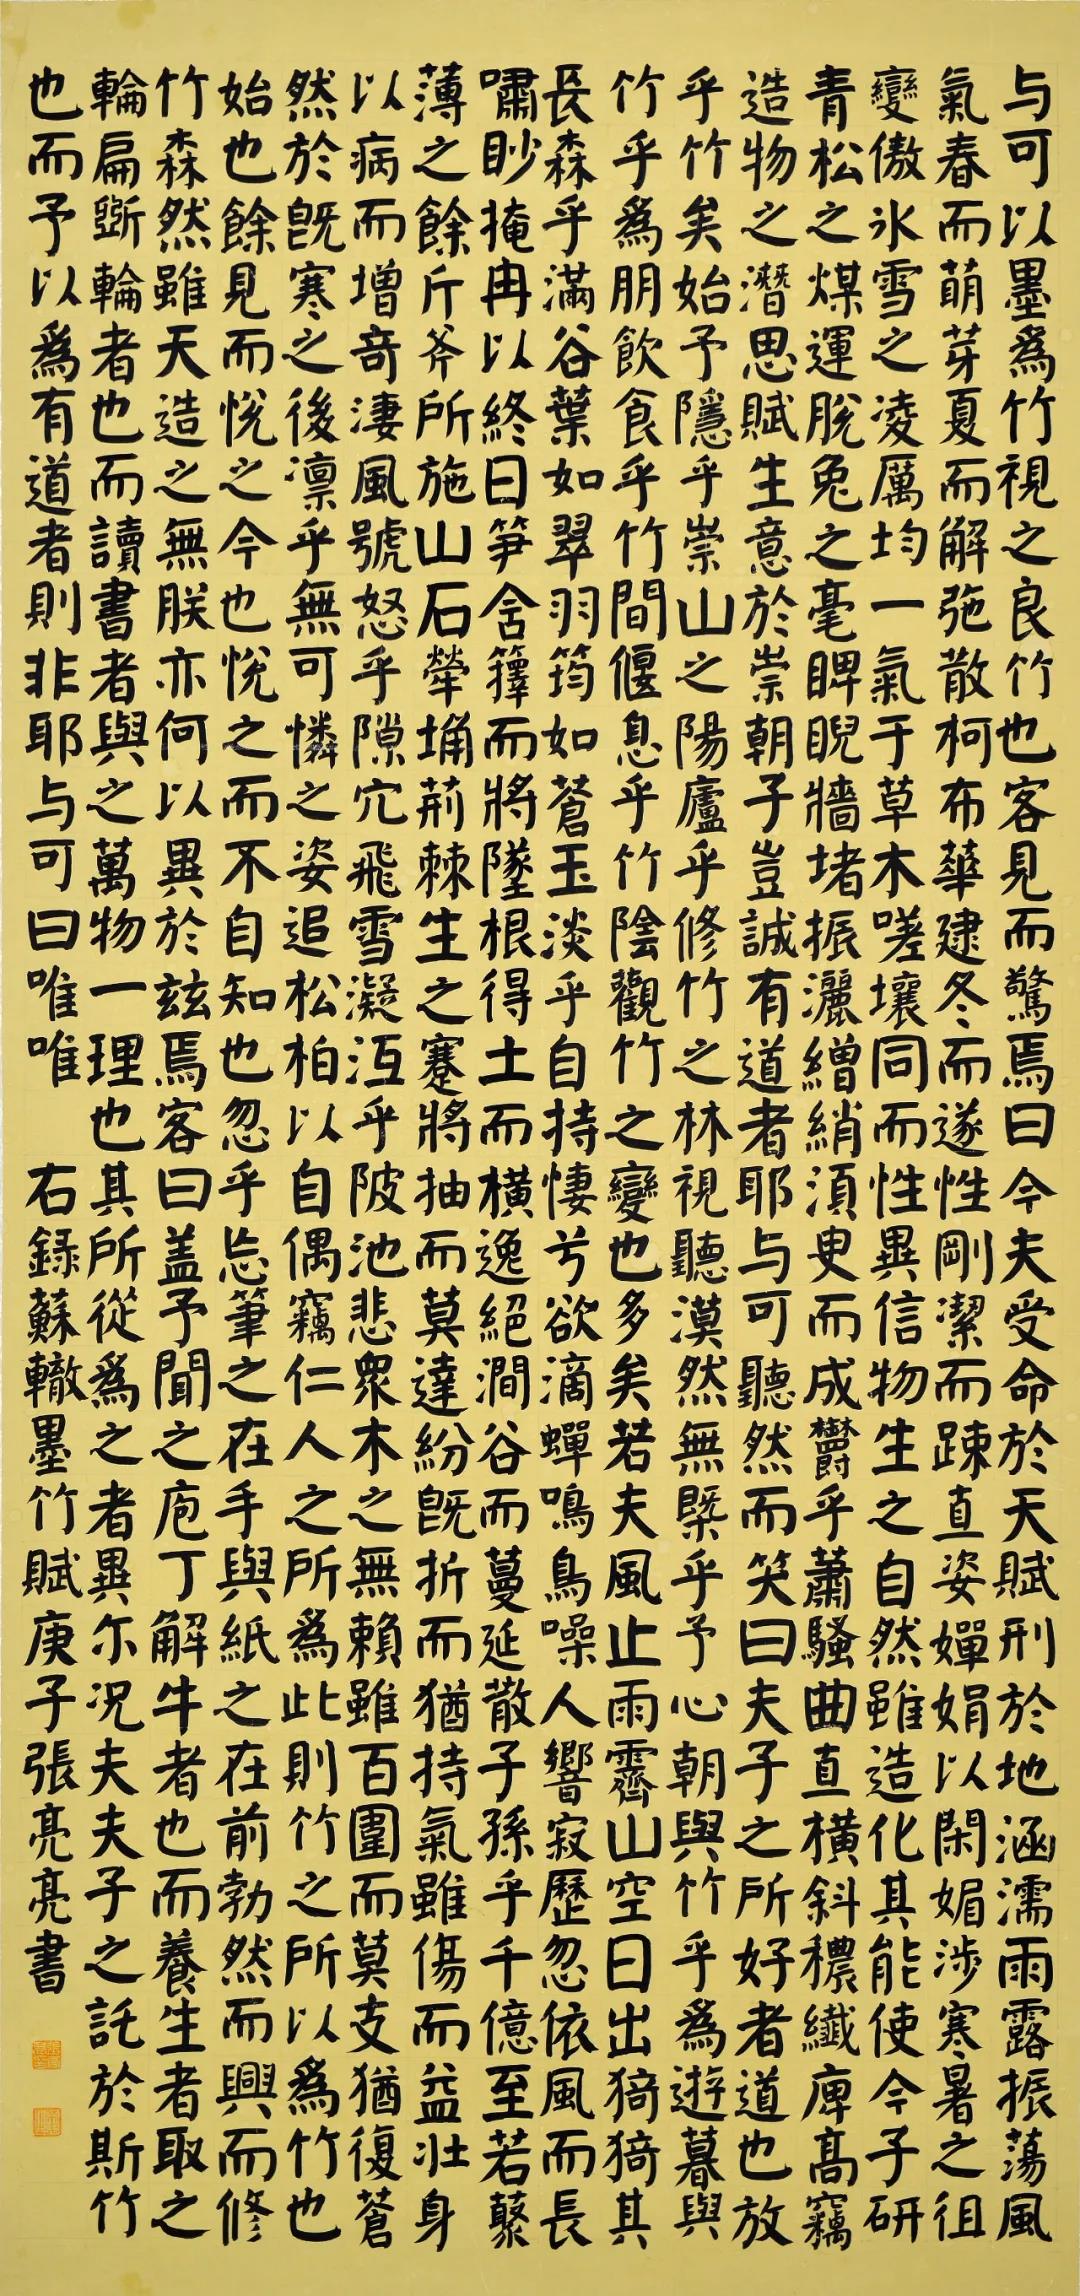 与可以墨爲竹視之良竹也客見而驚焉曰今夫受命於天賦刑於地涵濡雨露振蕩風
氣春而萌芽夏而解弛散柯布華逮冬而遂性剛潔而踈直姿嬋娟以閑媚涉寒暑之徂
變傲氷雪之凌厲均一氣于草木嗟壤同而性異信物生之自然雖造化其能使今子研
青松之煤運脫兔之毫睥睨牆堵振灑繒綃湏臾而成欝乎蕭騷曲直橫斜穠纖庳高竊
造物之潛思賦生意於崇朝子豈誠有道者耶与可聽然而笑曰夫子之所好者道也放
乎竹矣始予隱乎崇山之陽廬乎修竹之林視聽漠然無槩乎予心朝與竹乎爲遊暮與
竹乎爲朋飲食乎竹間偃息乎竹陰觀竹之變也多矣若夫風止雨霽山空日出猗猗其
長森乎滿谷葉如翠羽筠如蒼玉淡乎自持悽兮欲滴蟬鳴鳥噪人響寂歷忽依風而長
嘯眇掩冉以終日笋含籜而將墜根得土而橫逸絕澗谷而蔓延散子孫乎千億至若藂
薄之餘斤斧所施山石犖埆荊棘生之蹇將抽而莫達紛旣折而猶持氣雖傷而益壯身
以病而增奇淒風號怒乎隙穴飛雪凝沍乎陂池悲衆木之無賴雖百圍而莫支猶復蒼
然於旣寒之後凛乎無可憐之姿追松柏以自偶竊仁人之所爲此則竹之所以爲竹也
始也餘見而悅之今也悅之而不自知也忽乎忘筆之在手與紙之在前勃然而興而修
竹森然雖天造之無朕亦何以異於茲焉客曰盖予聞之庖丁解牛者也而養生者取之
輪扁斲輪者也而讀書者與之萬物一理也其所從爲之者異尔况夫夫子之託於斯竹
也而予以爲有道者則非耶与可曰唯唯 右録蘇轍墨竹賦庚子張亮亮書